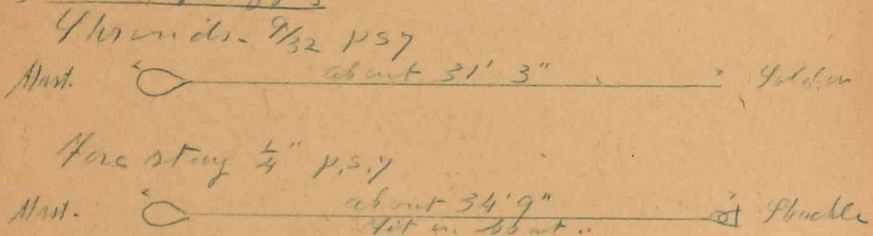 Shrouds - 9/32 p s y
Mast. about 31' 3" Solder
Fore stay 1/4" p.s.y
Mast. about 34' 9" Shackle
Fit on boat..